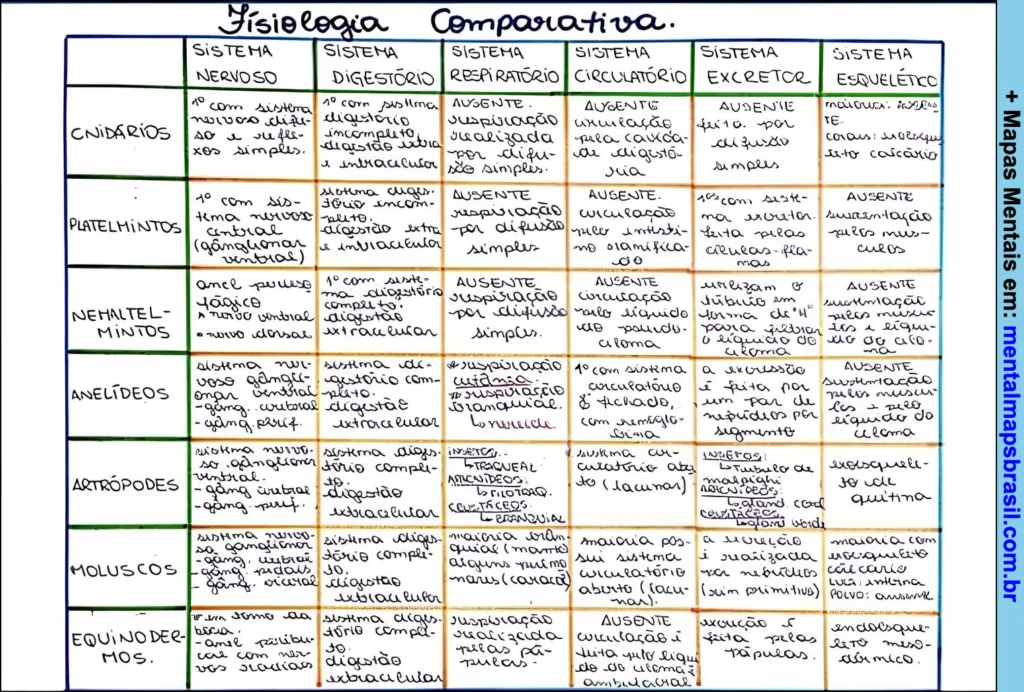 Fisiologia Comparativa.
SISTEMA NERVOSO
SISTEMA DIGESTÓRIO
SISTEMA RESPIRATÓRIO
SISTEMA CIRCULATÓRIO
SISTEMA EXCRETOR
SISTEMA ESQUELÉTICO
CNIDÁRIOS
1º com sistema
nervoso difu-
so e refle-
xos simples.
1º com sistema
digestório
incompleto,
digestão extra
e intracelular
AUSENTE.
respiração
realizada
por difu-
são simples.
AUSENTE
circulação
pela cavida-
de digestó-
ria
AUSENTE
feita por
difusão
simples
maioria:
TE.
corais:
calcário
PLATELMINTOS
1º com sis-
tema nervoso
central
(gânglionar
ventral)
sistema diges-
tório incom-
pleto.
digestão extra
e intracelular
AUSENTE
respiração
por difusão
simples
AUSENTE.
circulação
pelo intesti-
no ramifica-
do
1ºs com siste-
ma excretor.
feita pelas
células-fla-
mas
AUSENTE
sustentação
pelos mús-
culos
NEMALTEL-
MINTOS
anel
fágico
nervo ventral
nervo dorsal
1º com siste-
ma digestório
completo.
digestão
extracelular
AUSENTE.
respiração
por difusão
simples.
AUSENTE
circulação
pelo líquido
do pseudo-
celoma
utilizam o
túbulo em
forma de "H"
para filtrar
o líquido do
celoma
AUSENTE
sustentação
pelos múscu-
los e líqui-
do do celo-
ma
ANELÍDEOS
sistema ner-
voso gângli-
onar ventral
-gâng. cerebral
-gâng. perif.
sistema di-
gestório com-
pleto.
digestão
extracelular
*respiração
cutânea.
*respiração
branquial.
↳
1º com sistema
circulatório
fechado,
com hemoglo-
bina
a excressão
é feita por
um par de
nefrídios por
segmento
AUSENTE
sustentação
pelos múscu-
los e pelo
líquido do
celoma
ARTRÓPODES
sistema nervo-
so ganglionar
ventral.
-gâng cerebral
-gâng. perif.
sistema diges-
tório comple-
to.
digestão
extracelular
INSETOS:
↳TRAQUEAL
ARACNÍDEOS:
↳FILOTRAQ.
CRUSTÁCEOS:
↳BRANQUIAL
sistema cir-
culatório abe
to (lacunar)
INSETOS:
↳Tubulo de
malpighi
ARACNÍDEOS:
↳gland. coxal
CRUSTÁCEOS:
↳gland verde
exoesquele-
to de
quitina
MOLUSCOS
sistema nervo-
so ganglionar
-gâng. cerebral
-gâng. pediais
-gâng. visceral
sistema diges-
tório comple-
to.
digestão
extracelular
maioria bran-
quial (manto)
alguns pulmo-
nares (caracol)
maioria pos-
sui sistema
circulatório
aberto (lacu-
nar).
a excreção
é realizada
por nefrídios
(rim primitivo)
maioria com
exoesqueleto
calcário
LULA: interna
POLVO: ausente
EQUINODER-
MOS.
em torno da
boca:
-anel peribu-
cal com ner-
vos radiais
sistema diges-
tório comple-
to.
digestão
extracelular
respiração
realizada
pelas pá-
pulas.
AUSENTE
circulação é
feita pelo líqui
do do celoma e
ambulacral
excreção é
feita pelas
pápulas.
endoesque-
leto meso-
dérmico.
+ Mapas Mentais em: mentalmapsbrasil.com.br